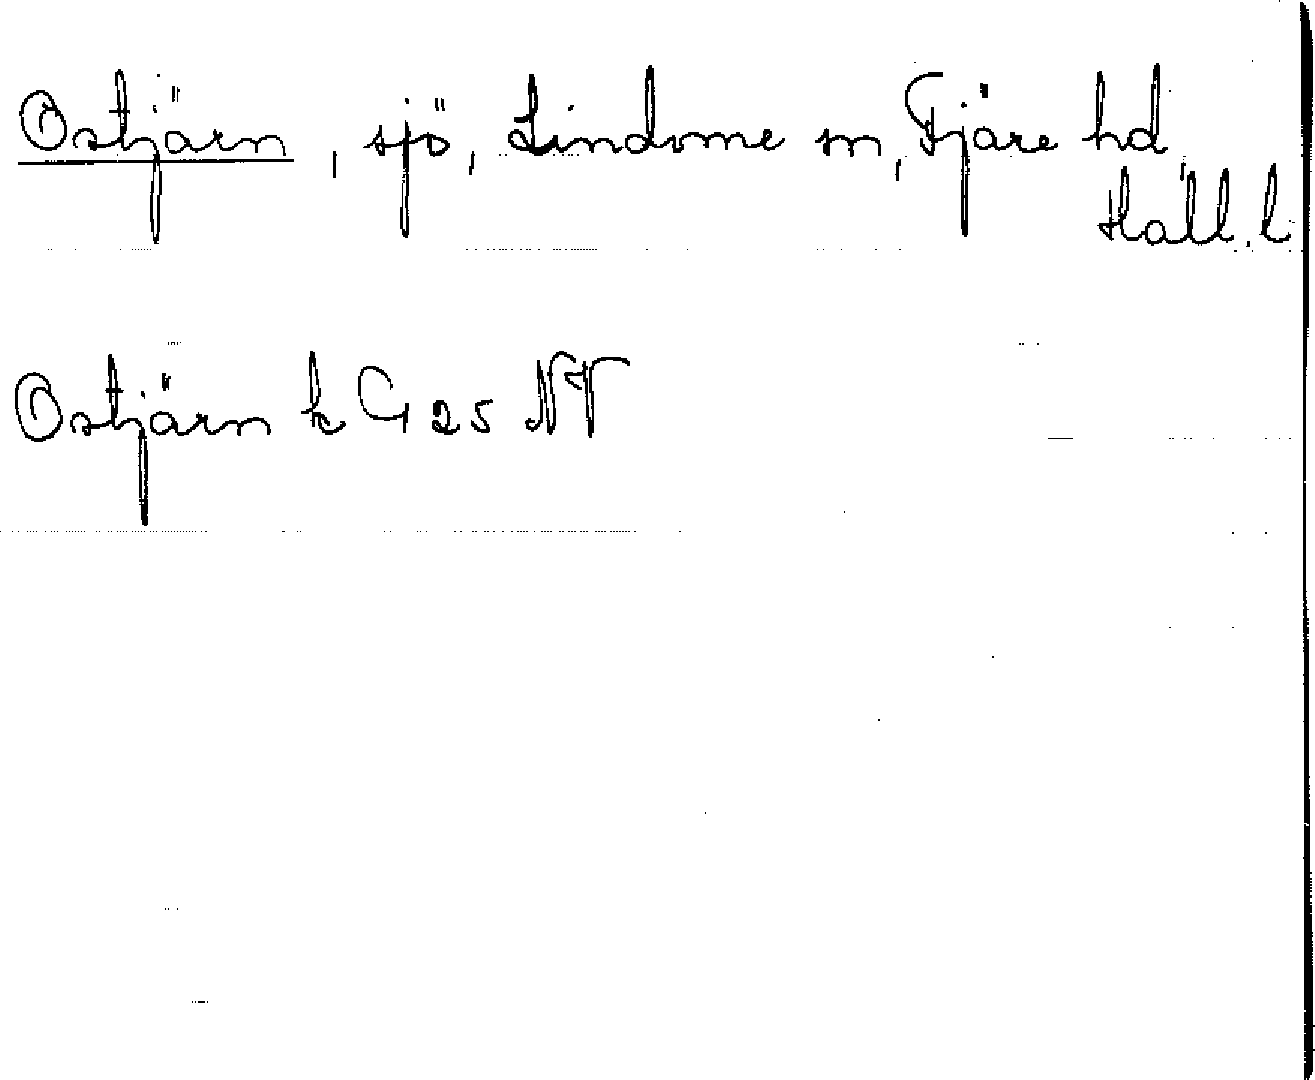 Ostjärn, sjö, Lindome sn, Fjäre hd,
Hall. l
Ostjärn k G 25 NV